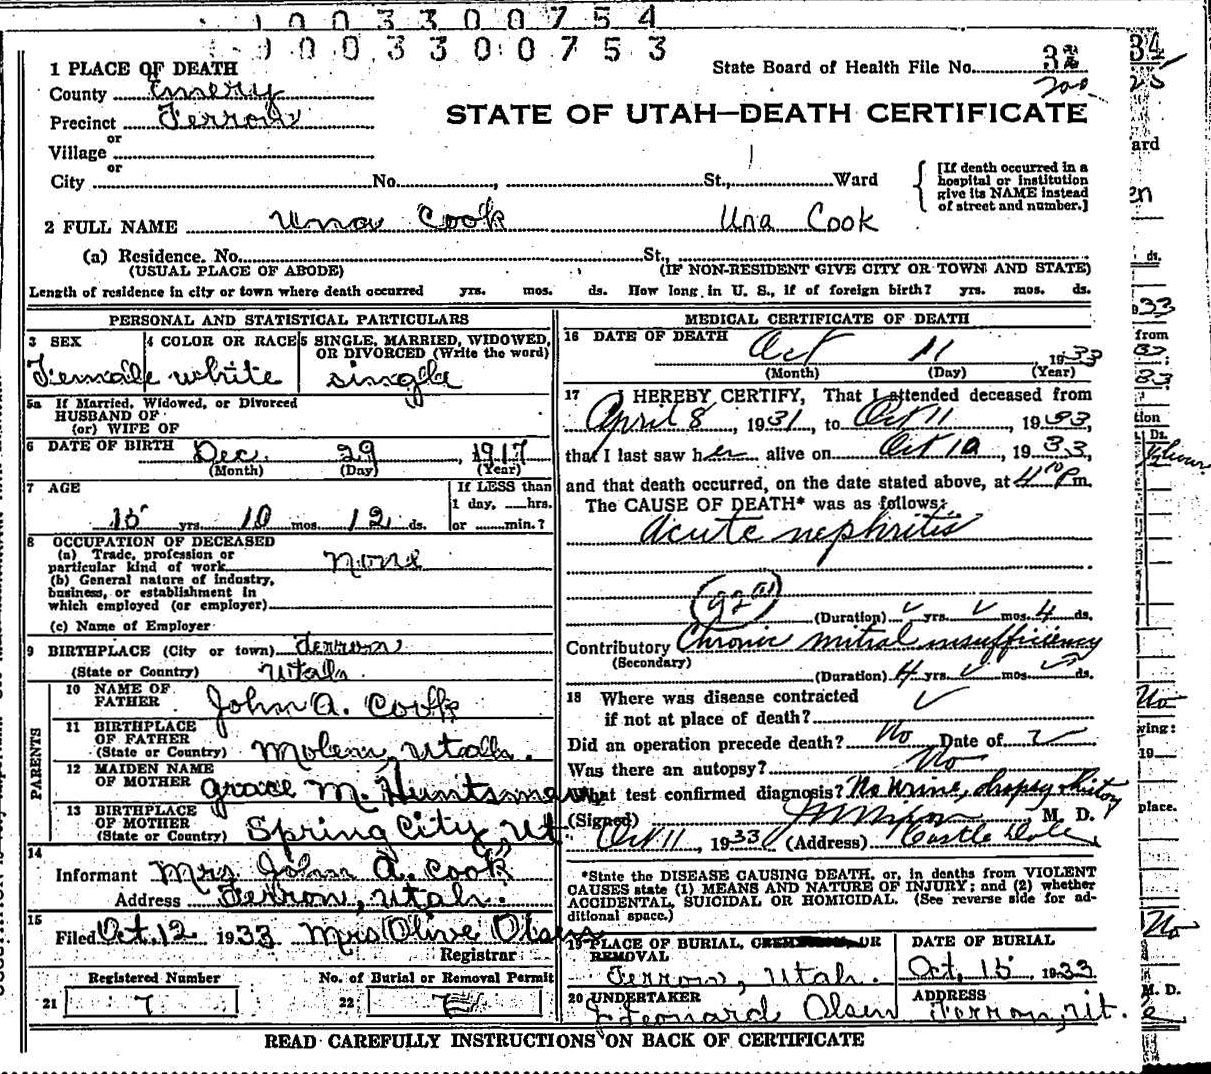 1 0 0 3 3 0 0 7 5 4
1 0 0 3 3 0 0 7 5 3
1 PLACE OF DEATH
State Board of Health File No.
County Emery
Precinct Ferron
STATE OF UTAH—DEATH CERTIFICATE
or
Village
or
City No. , St., Ward
[If death occurred in a hospital or institution give its NAME instead of street and number.]
2 FULL NAME Una Cook Una Cook
(a) Residence. No. St.,
(USUAL PLACE OF ABODE) (IF NON-RESIDENT GIVE CITY OR TOWN AND STATE)
Length of residence in city or town where death occurred yrs. mos. ds. How long in U. S., if of foreign birth? yrs. mos. ds.
PERSONAL AND STATISTICAL PARTICULARS
3 SEX
Female
4 COLOR OR RACE
white
5 SINGLE, MARRIED, WIDOWED, OR DIVORCED (Write the word)
single
5a If Married, Widowed, or Divorced
HUSBAND OF
(or) WIFE OF
6 DATE OF BIRTH Dec. 29, 1917
(Month) (Day) (Year)
7 AGE
15 yrs. 10 mos. 12 ds.
If LESS than
1 day, ___hrs.
or ___min.?
8 OCCUPATION OF DECEASED
(a) Trade, profession or
particular kind of work none
(b) General nature of industry,
business, or establishment in
which employed (or employer)
(c) Name of Employer
9 BIRTHPLACE (City or town) Ferron
(State or Country) Utah
PARENTS
10 NAME OF FATHER John A. Cook
11 BIRTHPLACE OF FATHER
(State or Country) Molen, Utah.
12 MAIDEN NAME OF MOTHER Grace M. Huntsman
13 BIRTHPLACE OF MOTHER
(State or Country) Spring City, Ut
14
Informant Mrs John A. Cook
Address Ferron, Utah.
15
Filed Oct. 12 1933 Mrs Olive Olsen
Registrar
Registered Number
21 7
No. of Burial or Removal Permit
22 7
MEDICAL CERTIFICATE OF DEATH
16 DATE OF DEATH Oct 11, 1933
(Month) (Day) (Year)
17 I HEREBY CERTIFY, That I attended deceased from
April 8, 1931, to Oct 11, 1933,
that I last saw her alive on Oct 10, 1933,
and that death occurred, on the date stated above, at 4 10 Pm.
The CAUSE OF DEATH* was as follows:
Acute nephritis
(Duration) yrs. mos. 4 ds.
Contributory Chronic mitral insufficiency
(Secondary)
(Duration) 4 yrs. mos. ds.
18 Where was disease contracted
if not at place of death?
Did an operation precede death? No Date of
Was there an autopsy? No
What test confirmed diagnosis? No Urine, dropsy, history
(Signed) M. D.
Oct 11, 1933 (Address) Castle Dale
*State the DISEASE CAUSING DEATH, or, in deaths from VIOLENT
CAUSES state (1) MEANS AND NATURE OF INJURY; and (2) whether
ACCIDENTAL, SUICIDAL OR HOMICIDAL. (See reverse side for ad-
ditional space.)
19 PLACE OF BURIAL, CREMATION, OR
REMOVAL
Ferron, Utah.
DATE OF BURIAL
Oct. 15 1933
20 UNDERTAKER
J Leonard Olsen
ADDRESS
Ferron, Ut.
READ CAREFULLY INSTRUCTIONS ON BACK OF CERTIFICATE